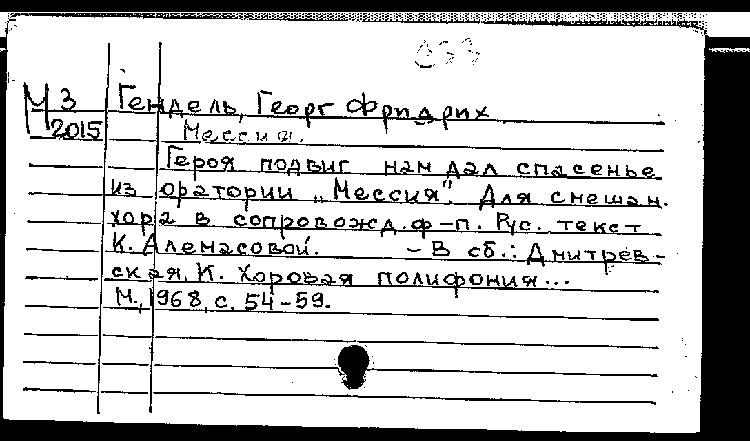 М 3 Гендель, Георг Фридрих
2015 Мессия.
Героя подвиг нам дал спасенье
из оратории „Мессия". Для смешан.
хора в сопровожд. ф-п. Рус. текст
К. Алемасовой. - В сб.: Дмитрев-
ская, К. Хоровая полифония...
М., 1968, с. 54-59.